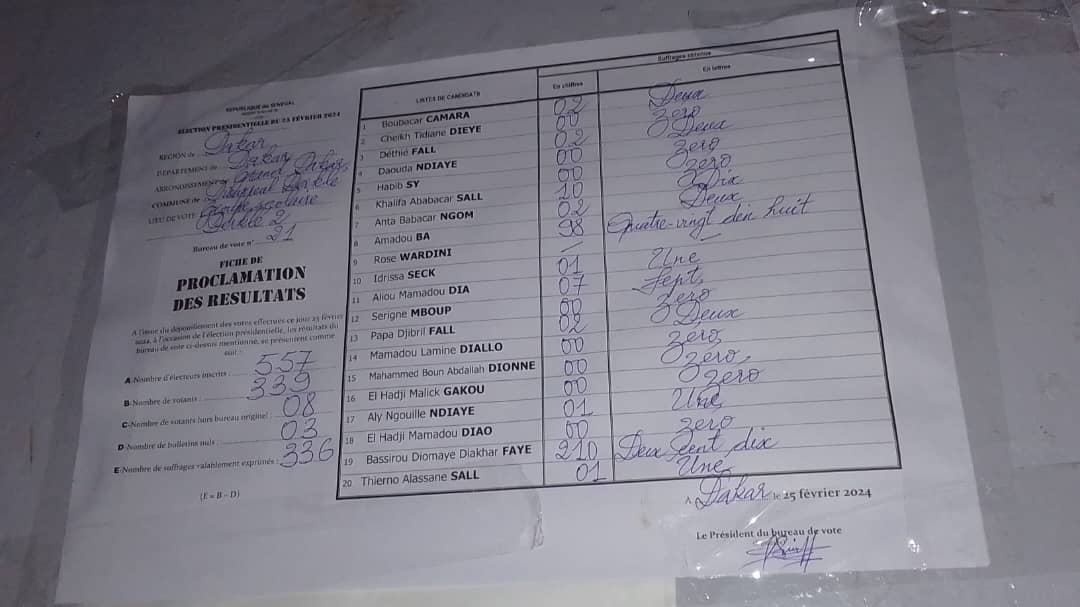 REPUBLIQUE du SENEGAL
ELECTION PRESIDENTIELLE DU 25 FÉVRIER 2024
REGION de : Dakar
DEPARTEMENT de : Dakar
ARRONDISSEMENT de
COMMUNE de :
LIEU DE VOTE :
21
Bureau de vote n°
FICHE DE
PROCLAMATION
DES RESULTATS
A l'issue du dépouillement des votes effectués ce jour 25 février
2024, à l'occasion de l'élection présidentielle, les résultats du
bureau de vote ci-dessus mentionné, se présentent comme
suit :
A-Nombre d'électeurs inscrits : 557
B-Nombre de votants : 339
C-Nombre de votants hors bureau originel : 08
D-Nombre de bulletins nuls : 03
E-Nombre de suffrages valablement exprimés : 336
(E = B - D)
Suffrages obtenus
LISTES DE CANDIDATS En chiffres En lettres
1 Boubacar CAMARA 02 Deux
2 Cheikh Tidiane DIEYE 00 zero
3 Déthié FALL 02 Deux
4 Daouda NDIAYE 00 zero
5 Habib SY 00 zero
6 Khalifa Ababacar SALL 10 Dix
7 Anta Babacar NGOM 02 Deux
8 Amadou BA 98 Quatre-vingt dix huit
9 Rose WARDINI
10 Idrissa SECK 01 Une
11 Aliou Mamadou DIA 07 Sept
12 Serigne MBOUP 00 zero
13 Papa Djibril FALL 02 Deux
14 Mamadou Lamine DIALLO 00 zero
15 Mahammed Boun Abdallah DIONNE 00 zero
16 El Hadji Malick GAKOU 00 zero
17 Aly Ngouille NDIAYE 01 Une
18 El Hadji Mamadou DIAO 00 zero
19 Bassirou Diomaye Diakhar FAYE 210 Deux Cent dix
20 Thierno Alassane SALL 01 Une
A Dakar le 25 février 2024
Le Président du bureau de vote